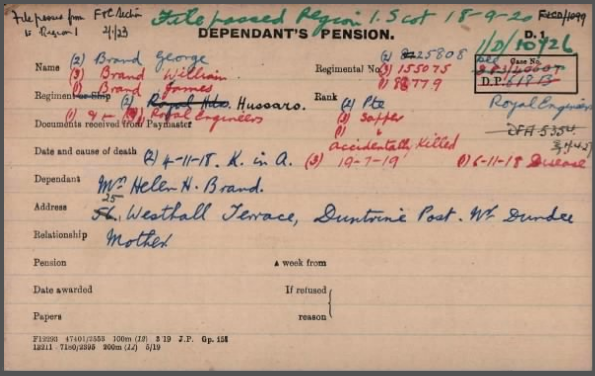 File passed from F&C Section File passed Region 1. Scot 18-9-20
to Region 1 2/1/23
DEPENDANT'S PENSION. D. 1
1/D/10926
Name (2) Brand George (2) 25808
(3) Brand William Regimental No. (3) 155075 Case No.
(1) Brand James (1) 8879 D.P.
Regiment or Ship (2) Royal Hrs. Hussars. Rank (2) Pte Royal Engineers
(1) (3) Royal Engineers (3) Sapper
Documents received from Paymaster (1) "
Accidentally Killed
Date and cause of death (2) 4-11-18. K. in A. (3) 19-7-19 (1) 6-11-18 Disease
Dependant Mrs Helen H. Brand.
25
Address 56, Westhall Terrace, Duntrune Post. Nr. Dundee
Relationship Mother
Pension A week from
Date awarded If refused
Papers reason
F12293 47401/2553 100m (12) 3/19 J.P. Gp. 151
12211 7180/2395 200m (12) 5/19